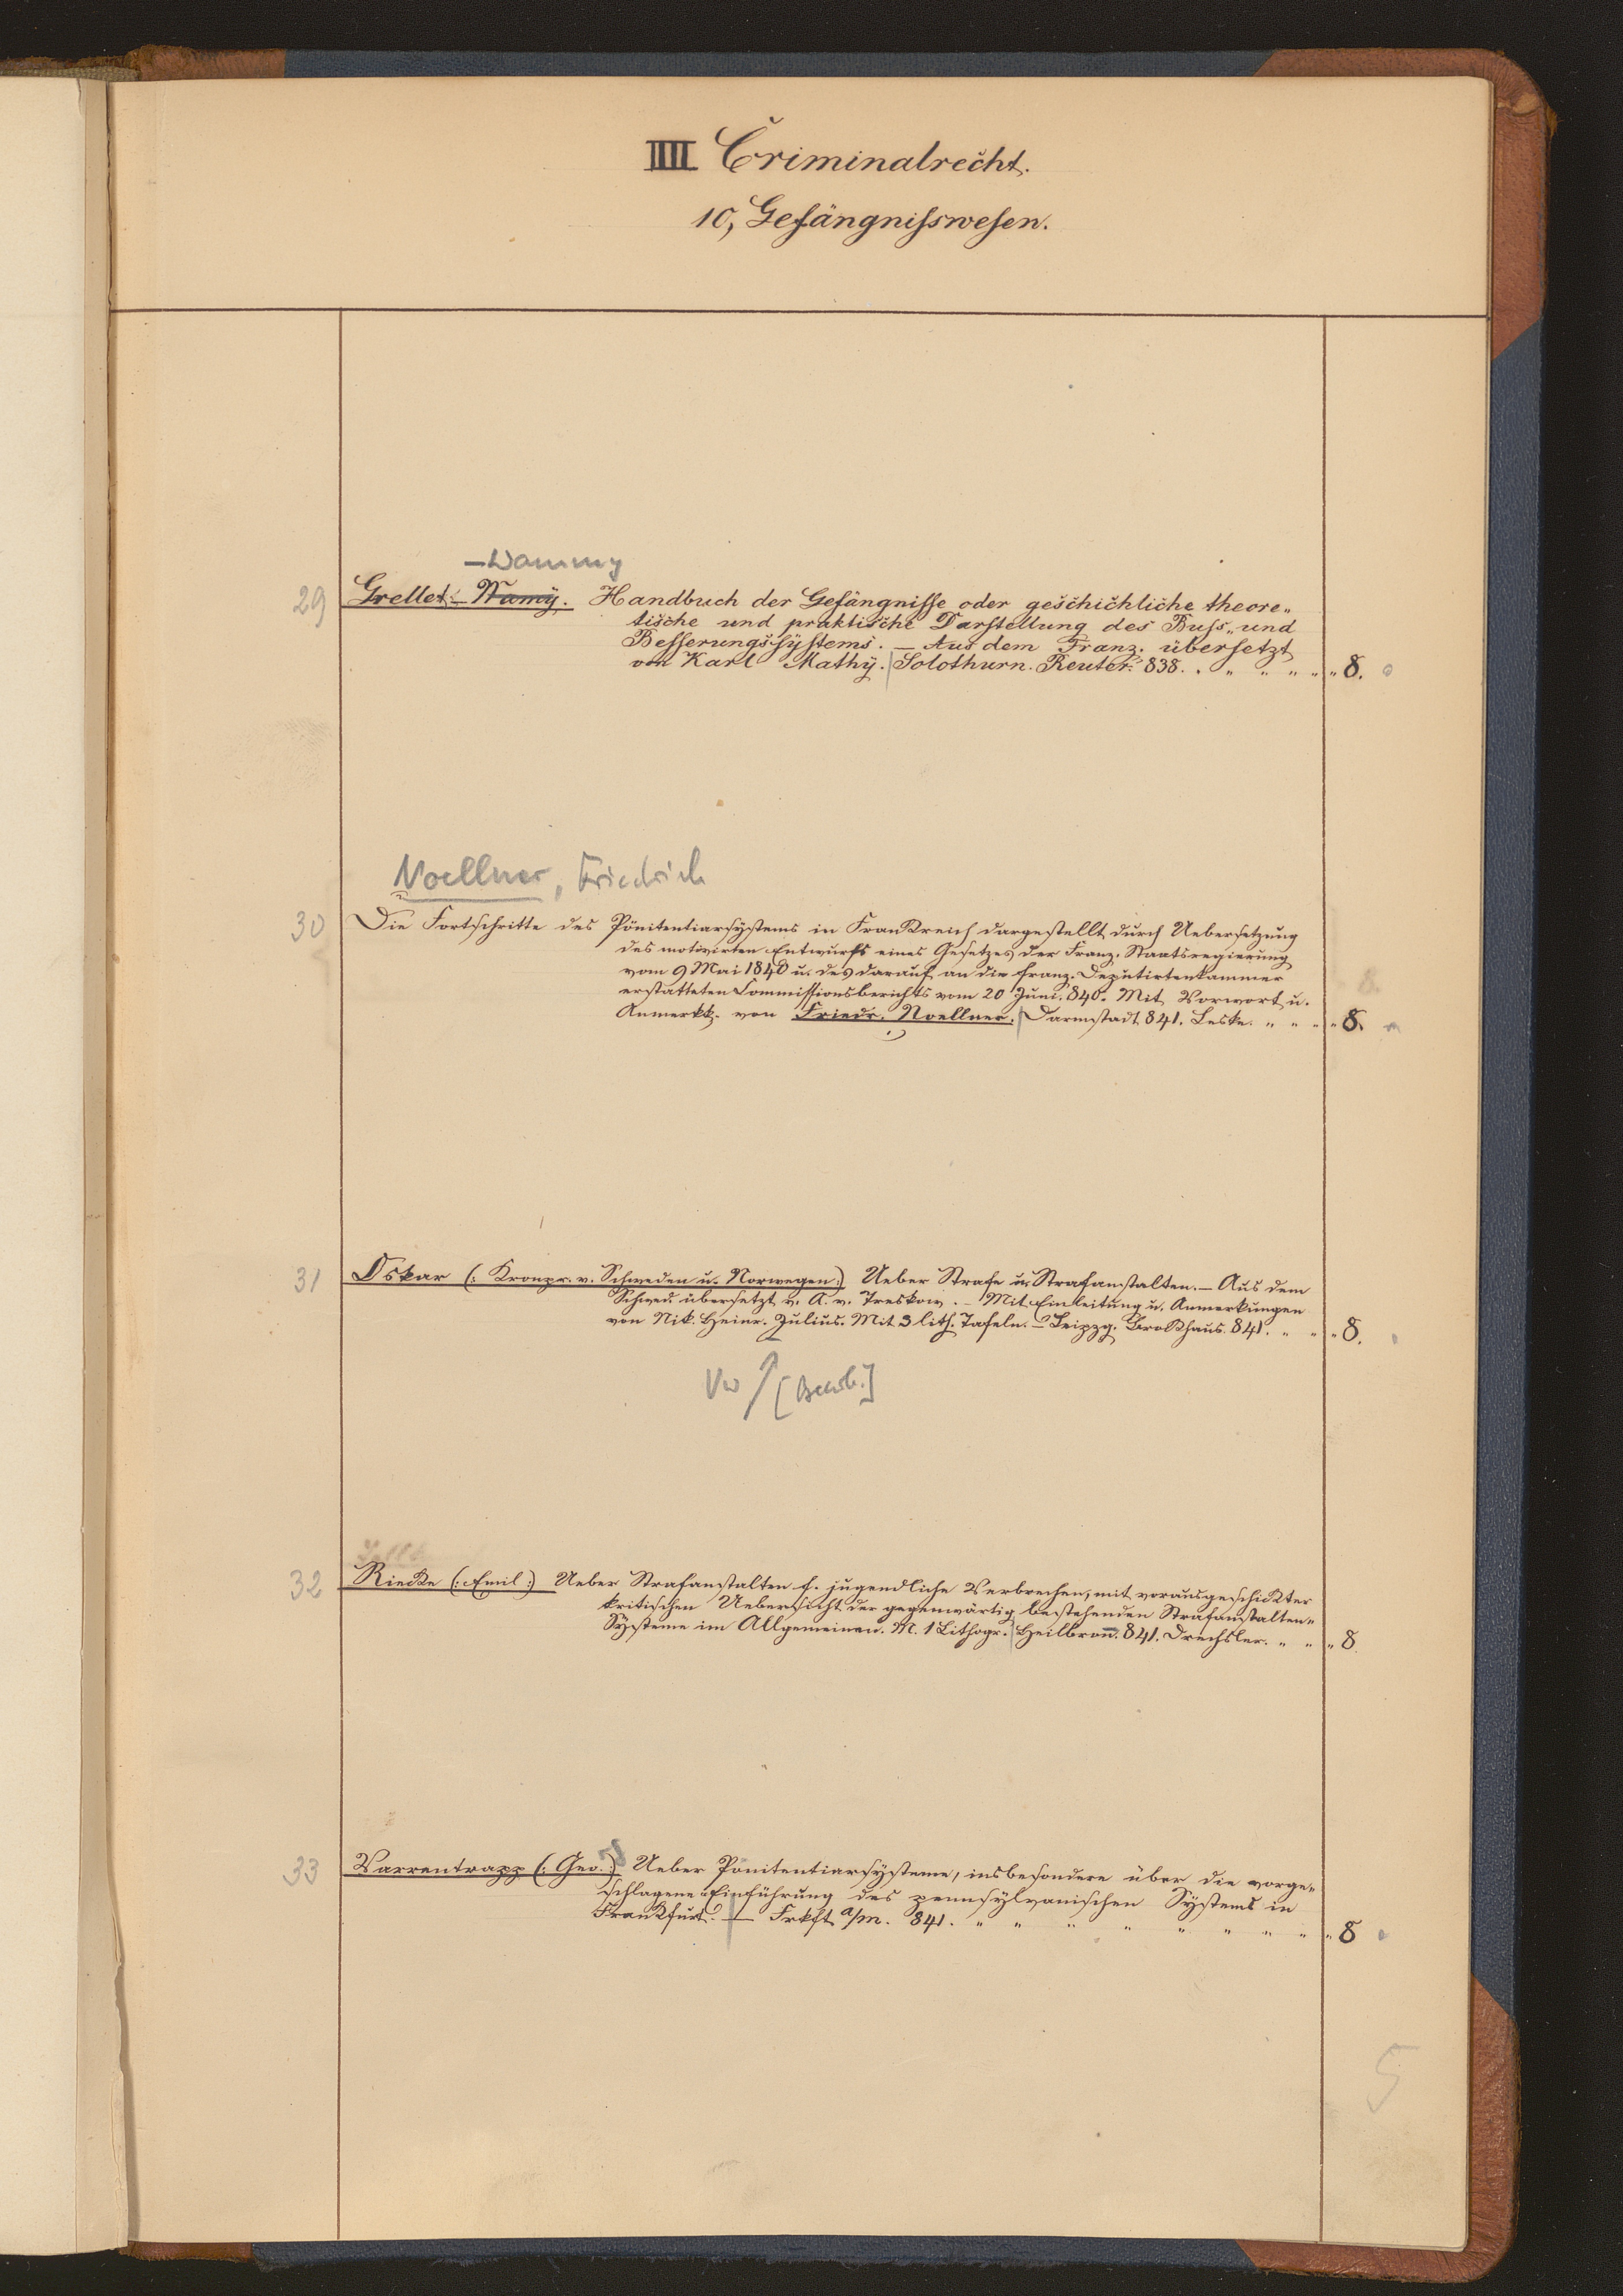 IIII Criminalrecht.
10, Gefängnisswesen.
-Wammy
29 Grellet-Wamÿ. Handbuch der Gefängnisse oder geschichliche theore„
tische und praktische Darstellung des Buss„und
Besserungssÿstems. – Aus dem Franz. übersetzt
von Karl Mathÿ. Solothurn. Reuter. 838. . „ „ „ „ „ 8.
Noellner, Friedrich
30 Die Fortschritte des Pönitentiarsÿstems in Frankreich dargestellt durch Uebersetzung
des motivirten Entwurfs eines Gesetzes der Franz. Staatsregierung
vom 9 Mai 1840 u. des darauf an die franz. Deputirtenkammer
erstatteten Commissionsberichts vom 20 Juni. 840. Mit Vorwort u.
Anmerkk. von Friedr. Noellner. Darmstadt 841. Leske. „ „ „ „ 8.
31 Oskar (: Kronpr. v. Schweden u. Norwegen:) Ueber Strafe u. Strafanstalten. – Aus dem
Schwed. übersetzt v. A. v. Treskow. – Mit Einleitung u. Anmerkungen
von Nik. Heinr. Julius. Mit 3 lith. Tafeln. – Leipzg. Brokhaus. 841. „ „ „ 8.
Vw ↑ [Bearb.]
32 Riecke (: Emil:) Ueber Strafanstalten f. jugendliche Verbrecher, mit vorausgeschikter
kritischen Uebersicht der gegenwärtig bestehenden Strafanstalten„
Sÿsteme im Allgemeinen. M. 1 Lithogr. Heilbron̅. 841. Drechsler. „ „ „ 8.
33 Varrentrapp (: Geo.:) Ueber Pönitentiarsÿsteme, insbesondere über die vorge„
schlagene Einführung des pennsÿlvanischen Sÿstems in
Frankfurt. – Frkft a/m. 841. „ „ „ „ „ „ „ „ „ 8
5